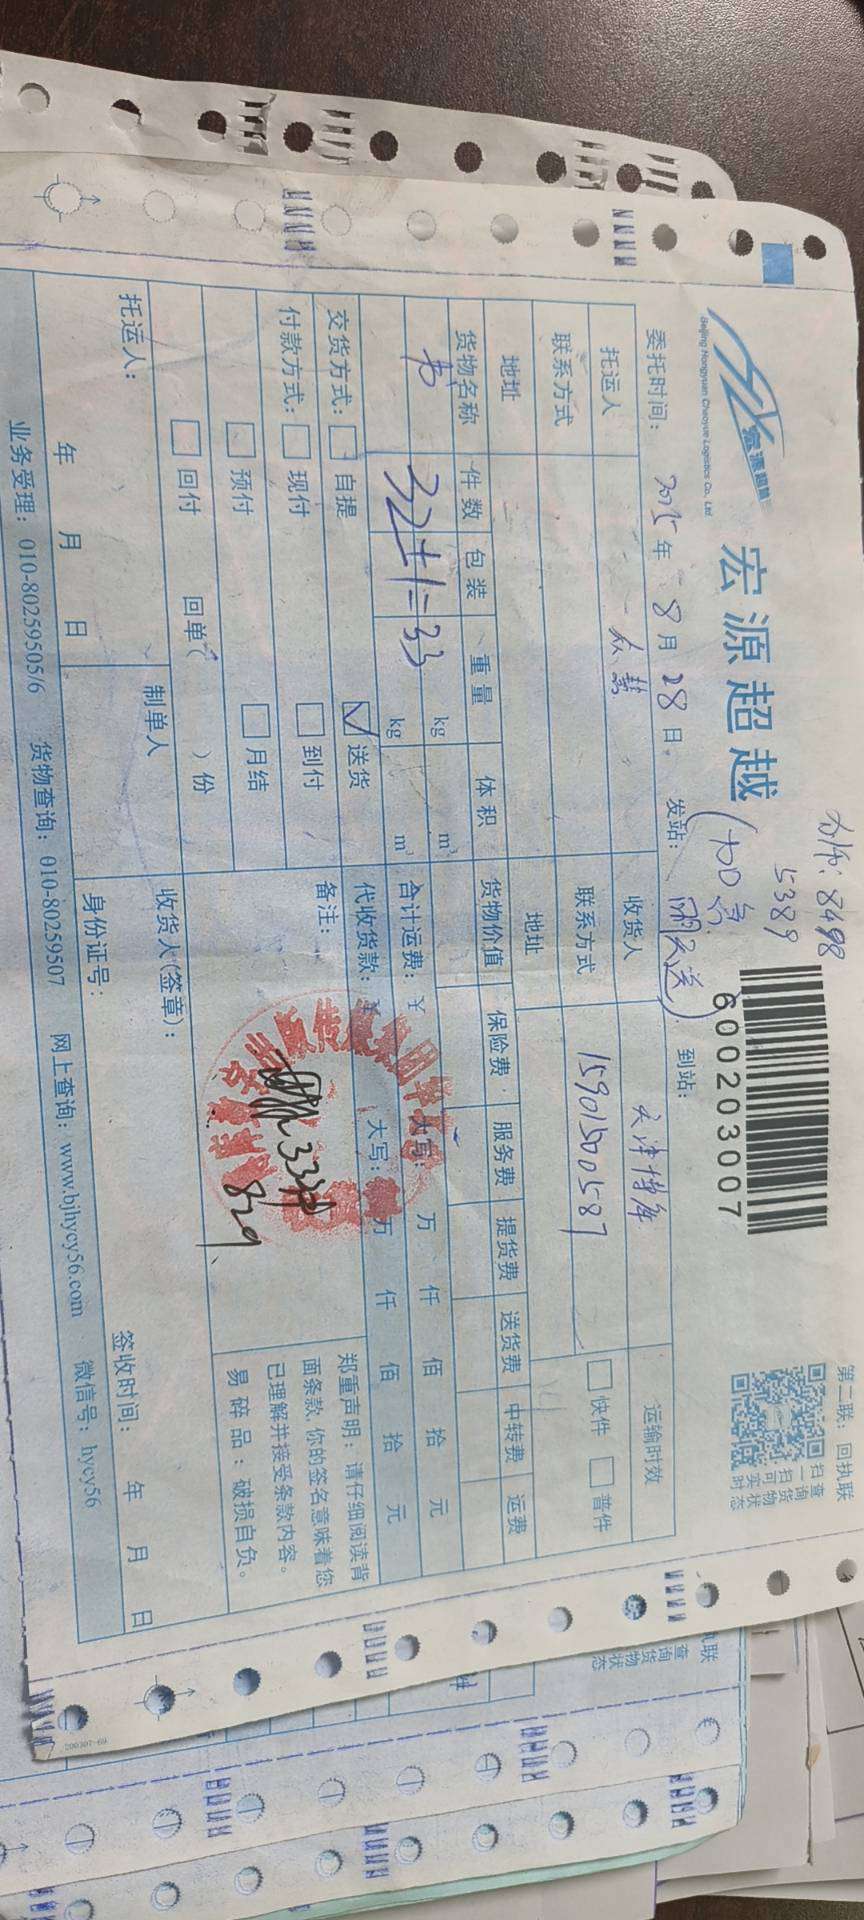 第二联：回执联
8498
5389
宏源超越
宏源超越
Beijing Hongyuan Chaoyue Logistics Co., Ltd
600203007
扫一扫 可实时
查询货物状态
委托时间： 2025年 8月 28日 发站： 到站：
明天送)
托运人 众慧 收货人 天津博库 运输时效
联系方式 联系方式 15901500587 快件 普件
地址 地址
货物名称 件数 包装 重量 体积 货物价值 保险费 服务费 提货费 送货费 中转费 运费
书 32+1=33 kg m³ 合计运费：￥ 大写： 万 仟 佰 拾 元
kg m³ 代收货款：￥ 大写： 万 仟 佰 拾 元
交货方式： 自提 送货 备注：
付款方式： 现付 到付
预付 月结
回付 回单( )份
33
829
郑重声明：请仔细阅读背
面条款，你的签名意味着您
已理解并接受条款内容。
易碎品：破损自负。
托运人： 制单人 收货人(签章)：
年 月 日 身份证号： 签收时间： 年 月 日
业务受理：010-80259505/6 货物查询：010-80259507 网上查询：www.bjhycy56.com 微信号：hycy56
200307-69
执联
查询货物状态